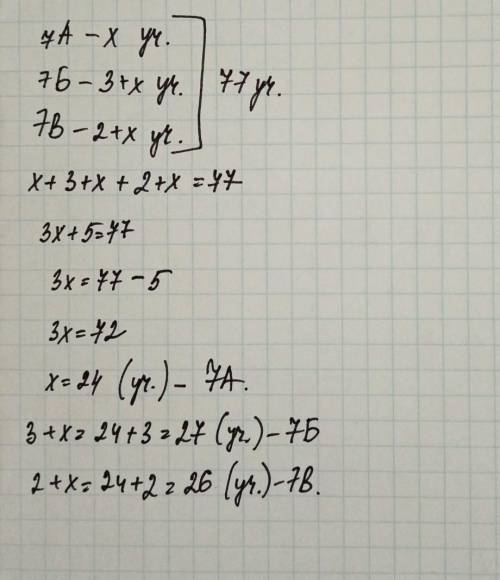 7А – x уч.
7Б – 3+x уч. 77 уч.
7В – 2+x уч.
x+3+x+2+x=77
3x+5=77
3x=77-5
3x=72
x=24 (уч.) – 7А.
3+x=24+3=27 (уч) – 7Б
2+x=24+2=26 (уч.) – 7В.